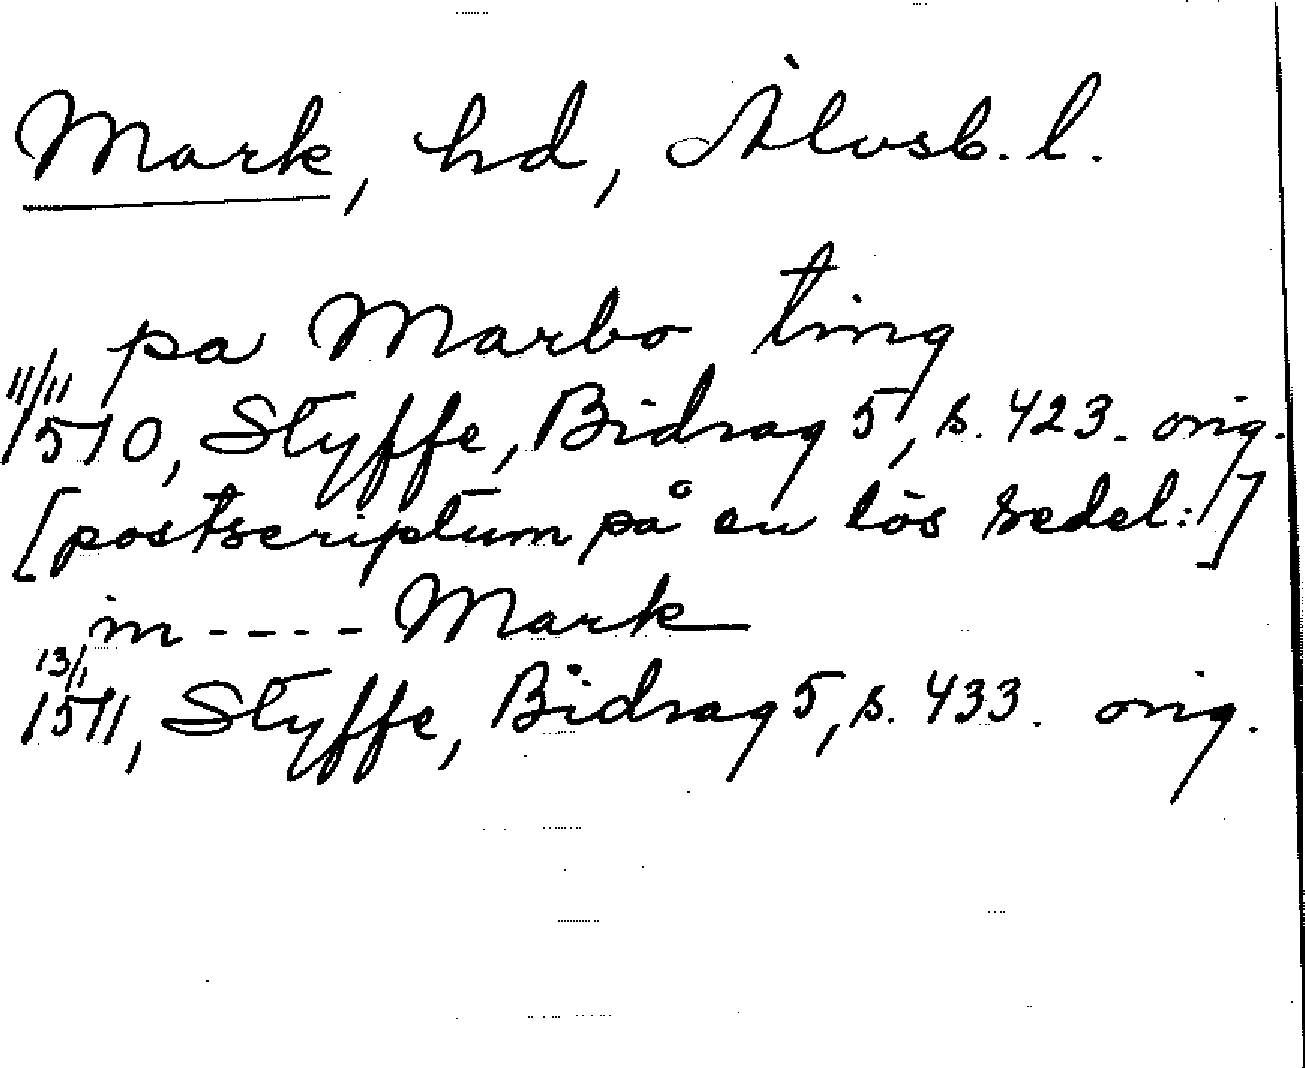 Mark, hd, Älvsb. l.
pa Marbo ting
11/11
1510, Styffe, Bidrag 5, s. 423. orig.
[postscriptum på en lös sedel:]
in ---- Mark
13/1
1511, Styffe, Bidrag 5, s. 433. orig.